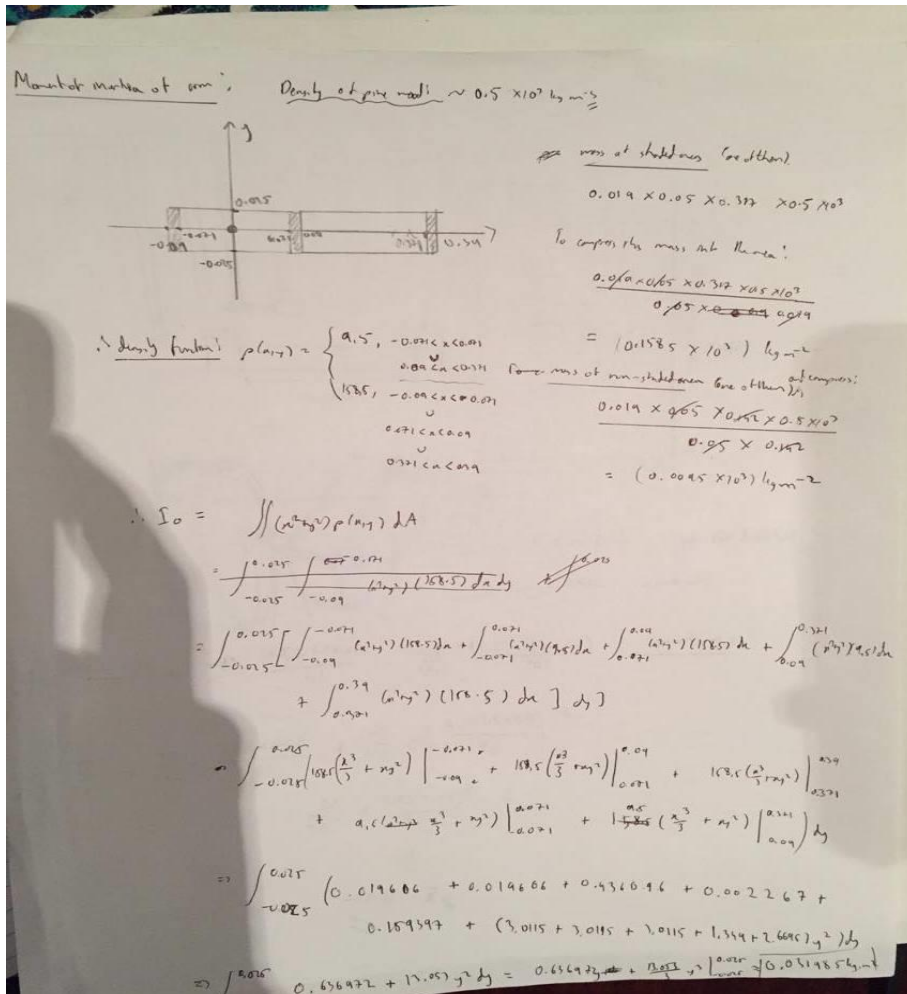 Moment of inertia of arm:
Density of pine wood: ~ 0.5 ×10³ kg m⁻³
y
0.025
-0.09 -0.071 0.071 0.09 0.371 0.39
-0.025
mass of shaded area (one of them)
0.019 × 0.05 × 0.317 × 0.5 ×10³
To compress this mass into the area:
0.019 × 0.05 × 0.317 × 0.5 × 10³
0.05 × 0.019
= (0.1585 × 10³) kg m⁻²
∴ density function: ρ(x,y) = { 9.5, -0.071 < x < 0.071
∪
0.09 < x < 0.371
158.5, -0.09 < x < -0.071
∪
0.071 < x < 0.09
∪
0.371 < x < 0.39
mass of non-shaded area (one of them) and compress:
0.019 × 0.05 × 0.152 × 0.5 ×10³
0.05 × 0.152
= (0.0095 ×10³) kg m⁻²
∴ I₀ = ∬ (x²+y²) ρ(x,y) dA
= ∫_{-0.025}^{0.025} ∫_{-0.09} (x²+y²) (158.5) dx dy
= ∫_{-0.025}^{0.025} [ ∫_{-0.09}^{-0.071} (x²+y²) (158.5) dx + ∫_{-0.071}^{0.071} (x²+y²) (9.5) dx + ∫_{0.071}^{0.09} (x²+y²) (158.5) dx + ∫_{0.09}^{0.371} (x²+y²) (9.5) dx
+ ∫_{0.371}^{0.39} (x²+y²) (158.5) dx ] dy
= ∫_{-0.025}^{0.025} ( 158.5 (x³/3 + xy²) |_{-0.09}^{-0.071} + 158.5 (x³/3 + xy²) |_{0.071}^{0.09} + 158.5 (x³/3 + xy²) |_{0.371}^{0.39}
+ 9.5 ( x³/3 + xy²) |_{0.071}^{0.071} + 9.5 (x³/3 + xy²) |_{0.09}^{0.371} ) dy
=> ∫_{-0.025}^{0.025} (0.019606 + 0.019606 + 0.436096 + 0.002267 +
0.159397 + (3.0115 + 3.0115 + 3.0115 + 1.349 + 2.6695) y² ) dy
=> ∫^{0.025} 0.636972 + 13.053 y² dy = 0.636972y + 13.053/3 y³ |^{0.025} = 0.031985 kg m²